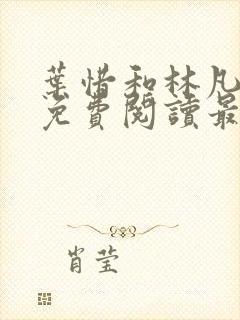 葉惜和林凡
免費閱讀最
肖莹